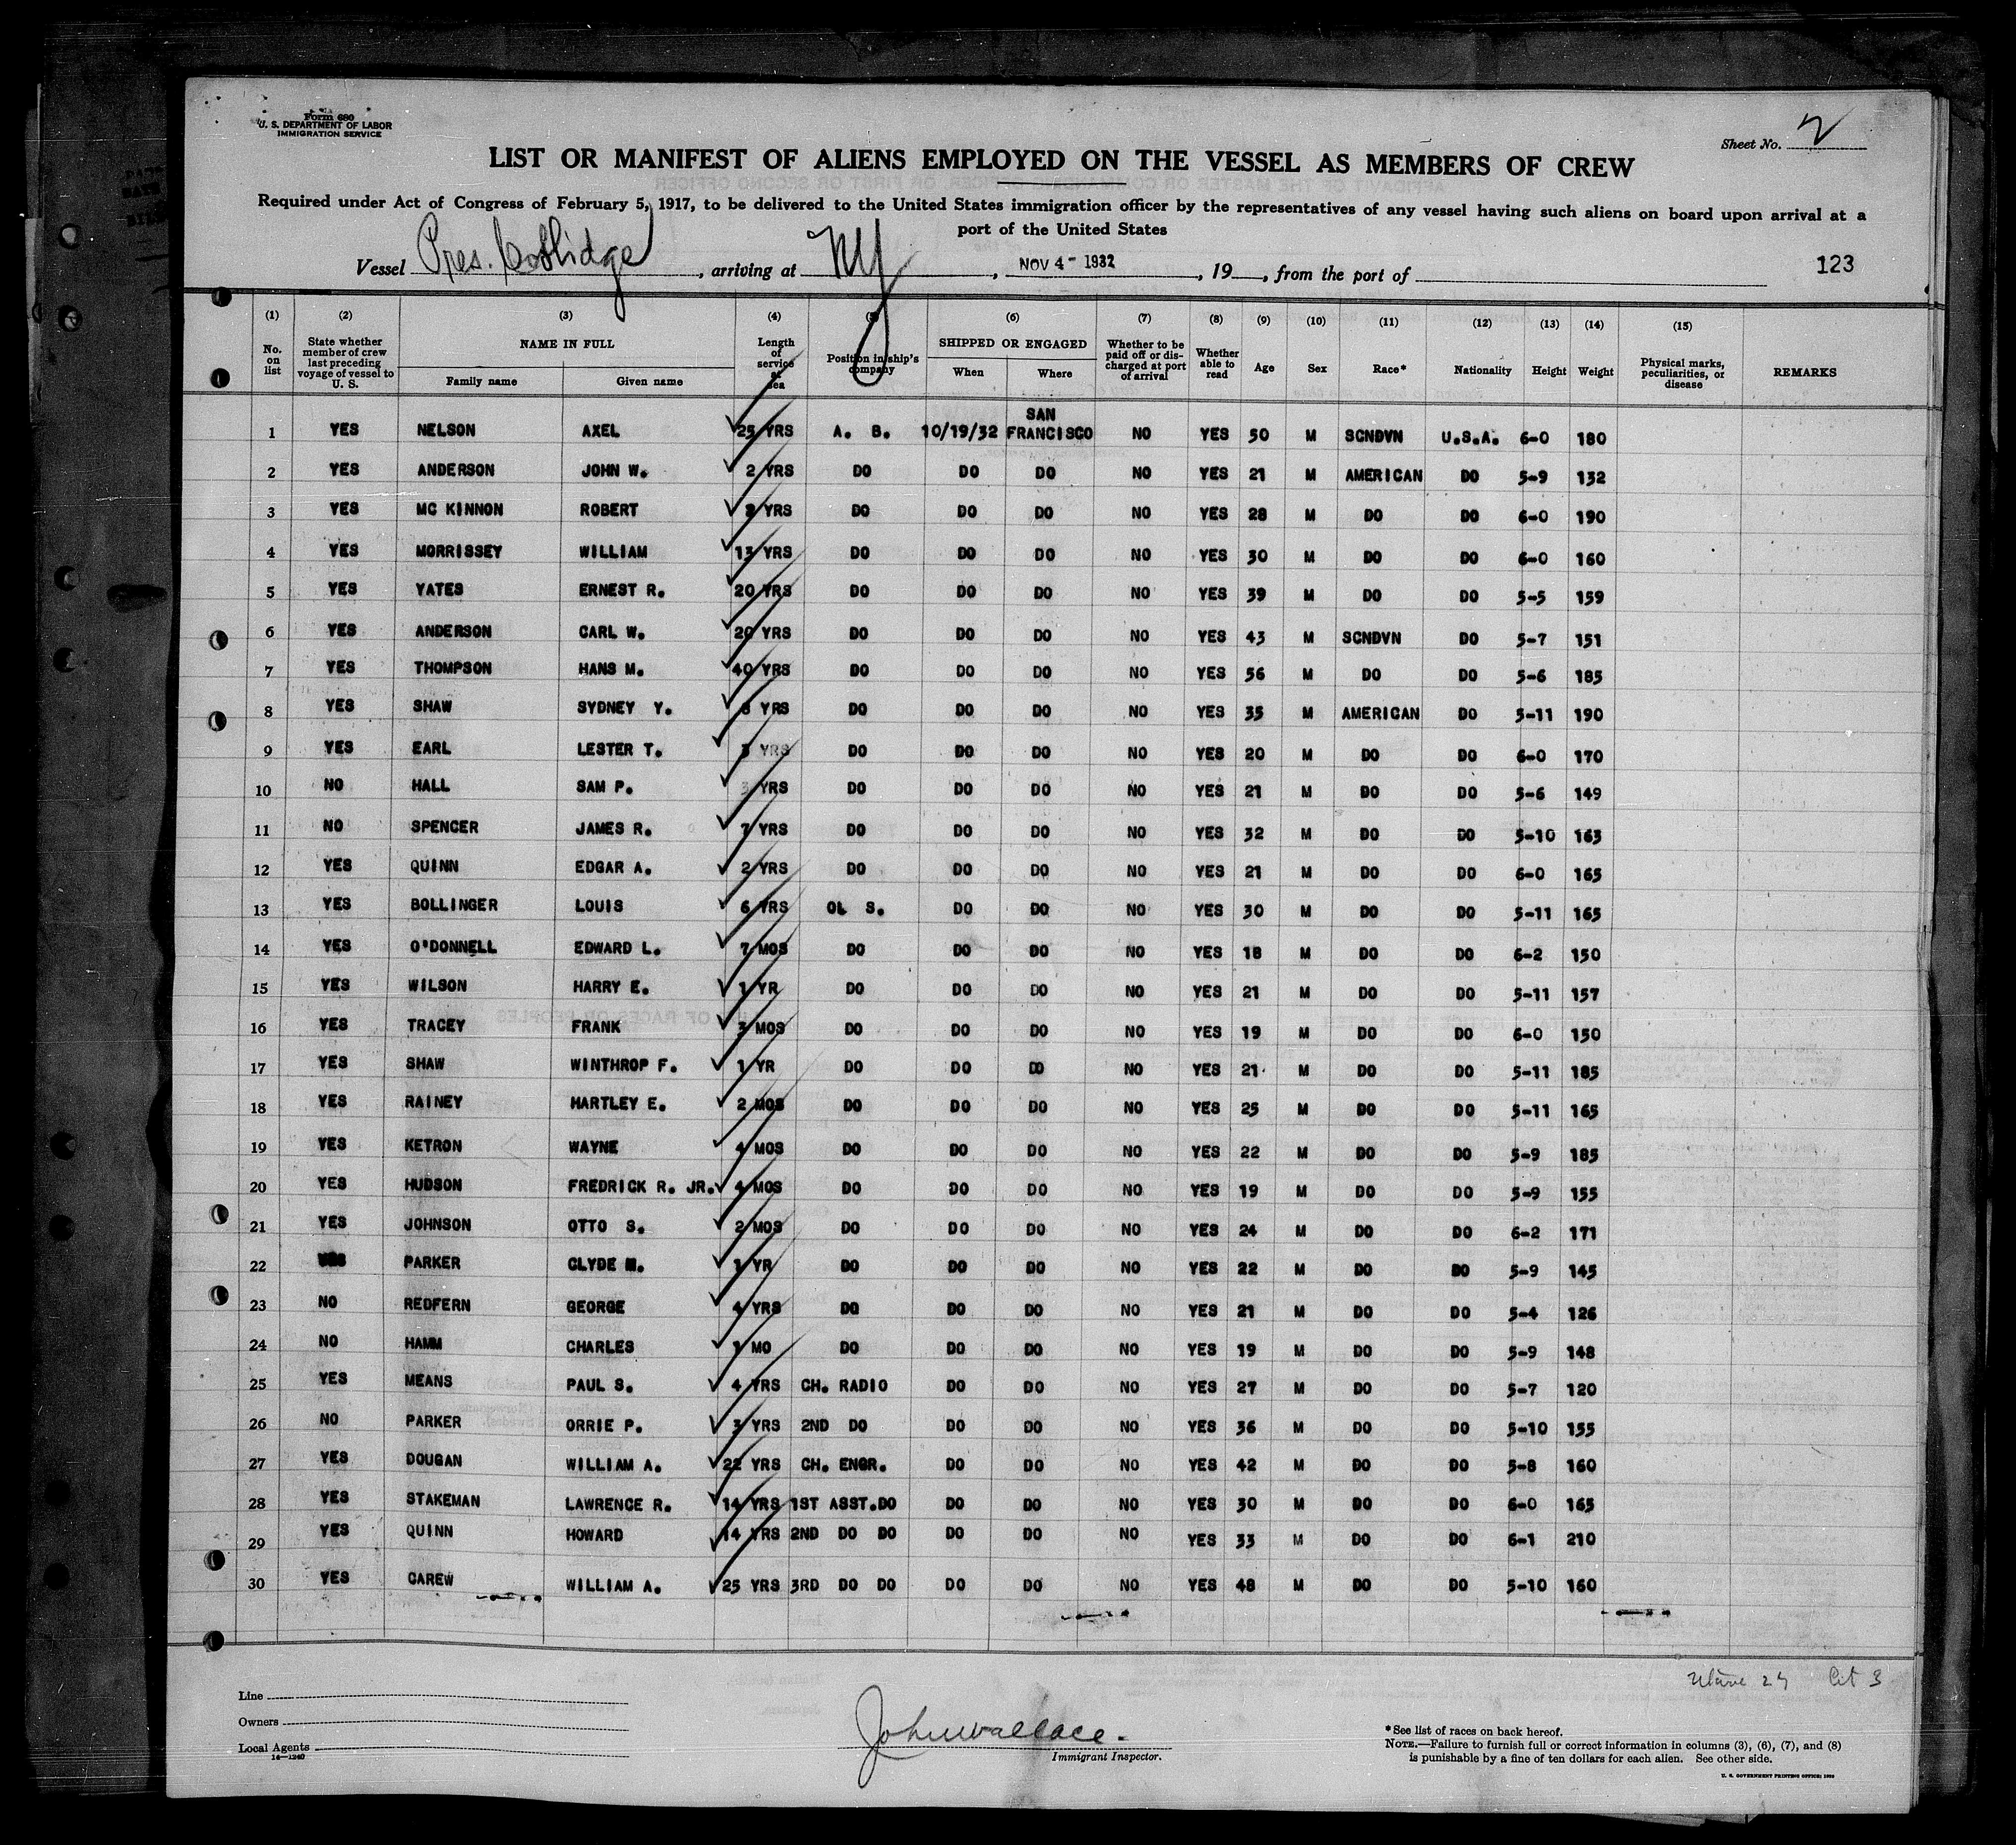 Form 680
U. S. DEPARTMENT OF LABOR
IMMIGRATION SERVICE
Sheet No. 2
LIST OR MANIFEST OF ALIENS EMPLOYED ON THE VESSEL AS MEMBERS OF CREW
Required under Act of Congress of February 5, 1917, to be delivered to the United States immigration officer by the representatives of any vessel having such aliens on board upon arrival at a
port of the United States
Vessel Pres. Coolidge, arriving at NY, NOV 4 - 1932, 19, from the port of 123
(1) (2) (3) (4) (5) (6) (7) (8) (9) (10) (11) (12) (13) (14) (15)
No. on list State whether member of crew last preceding voyage of vessel to U. S. NAME IN FULL Family name Given name Length of service at sea Position in ship's company SHIPPED OR ENGAGED When Where Whether to be paid off or discharged at port of arrival Whether able to read Age Sex Race* Nationality Height Weight Physical marks, peculiarities, or disease REMARKS
1 YES NELSON AXEL 25 YRS A. B. 10/19/32 SAN FRANCISCO NO YES 50 M SCNDVN U.S.A. 6-0 180
2 YES ANDERSON JOHN W. 2 YRS DO DO DO NO YES 21 M AMERICAN DO 5-9 132
3 YES MC KINNON ROBERT YRS DO DO DO NO YES 28 M DO DO 6-0 190
4 YES MORRISSEY WILLIAM 13 YRS DO DO DO NO YES 30 M DO DO 6-0 160
5 YES YATES ERNEST R. 20 YRS DO DO DO NO YES 39 M DO DO 5-5 159
6 YES ANDERSON CARL W. 20 YRS DO DO DO NO YES 43 M SCNDVN DO 5-7 151
7 YES THOMPSON HANS M. 40 YRS DO DO DO NO YES 56 M DO DO 5-6 185
8 YES SHAW SYDNEY Y. YRS DO DO DO NO YES 35 M AMERICAN DO 5-11 190
9 YES EARL LESTER T. YRS DO DO DO NO YES 20 M DO DO 6-0 170
10 NO HALL SAM P. 3 YRS DO DO DO NO YES 21 M DO DO 5-6 149
11 NO SPENCER JAMES R. 7 YRS DO DO DO NO YES 32 M DO DO 5-10 163
12 YES QUINN EDGAR A. 2 YRS DO DO DO NO YES 21 M DO DO 6-0 165
13 YES BOLLINGER LOUIS 6 YRS OL S. DO DO NO YES 30 M DO DO 5-11 165
14 YES O'DONNELL EDWARD L. 7 MOS DO DO DO NO YES 18 M DO DO 6-2 150
15 YES WILSON HARRY E. 1 YR DO DO DO NO YES 21 M DO DO 5-11 157
16 YES TRACEY FRANK 3 MOS DO DO DO NO YES 19 M DO DO 6-0 150
17 YES SHAW WINTHROP F. 1 YR DO DO DO NO YES 21 M DO DO 5-11 185
18 YES RAINEY HARTLEY E. 2 MOS DO DO DO NO YES 25 M DO DO 5-11 165
19 YES KETRON WAYNE 4 MOS DO DO DO NO YES 22 M DO DO 5-9 185
20 YES HUDSON FREDRICK R. JR. 4 MOS DO DO DO NO YES 19 M DO DO 5-9 155
21 YES JOHNSON OTTO S. 2 MOS DO DO DO NO YES 24 M DO DO 6-2 171
22 PARKER CLYDE M. 1 YR DO DO DO NO YES 22 M DO DO 5-9 145
23 NO REDFERN GEORGE 4 YRS DO DO DO NO YES 21 M DO DO 5-4 126
24 NO HAMM CHARLES 1 MO DO DO DO NO YES 19 M DO DO 5-9 148
25 YES MEANS PAUL S. 4 YRS CH. RADIO DO DO NO YES 27 M DO DO 5-7 120
26 NO PARKER ORRIE P. 3 YRS 2ND DO DO DO NO YES 36 M DO DO 5-10 155
27 YES DOUGAN WILLIAM A. 22 YRS CH. ENGR. DO DO NO YES 42 M DO DO 5-8 160
28 YES STAKEMAN LAWRENCE R. 14 YRS 1ST ASST.DO DO DO NO YES 30 M DO DO 6-0 165
29 YES QUINN HOWARD 14 YRS 2ND DO DO DO DO NO YES 33 M DO DO 6-1 210
30 YES CAREW WILLIAM A. 25 YRS 3RD DO DO DO DO NO YES 48 M DO DO 5-10 160
Cit 3
Line
Owners
Local Agents
16-1240
John Wallace.
Immigrant Inspector.
*See list of races on back hereof.
NOTE.—Failure to furnish full or correct information in columns (3), (6), (7), and (8)
is punishable by a fine of ten dollars for each alien. See other side.
U. S. GOVERNMENT PRINTING OFFICE: